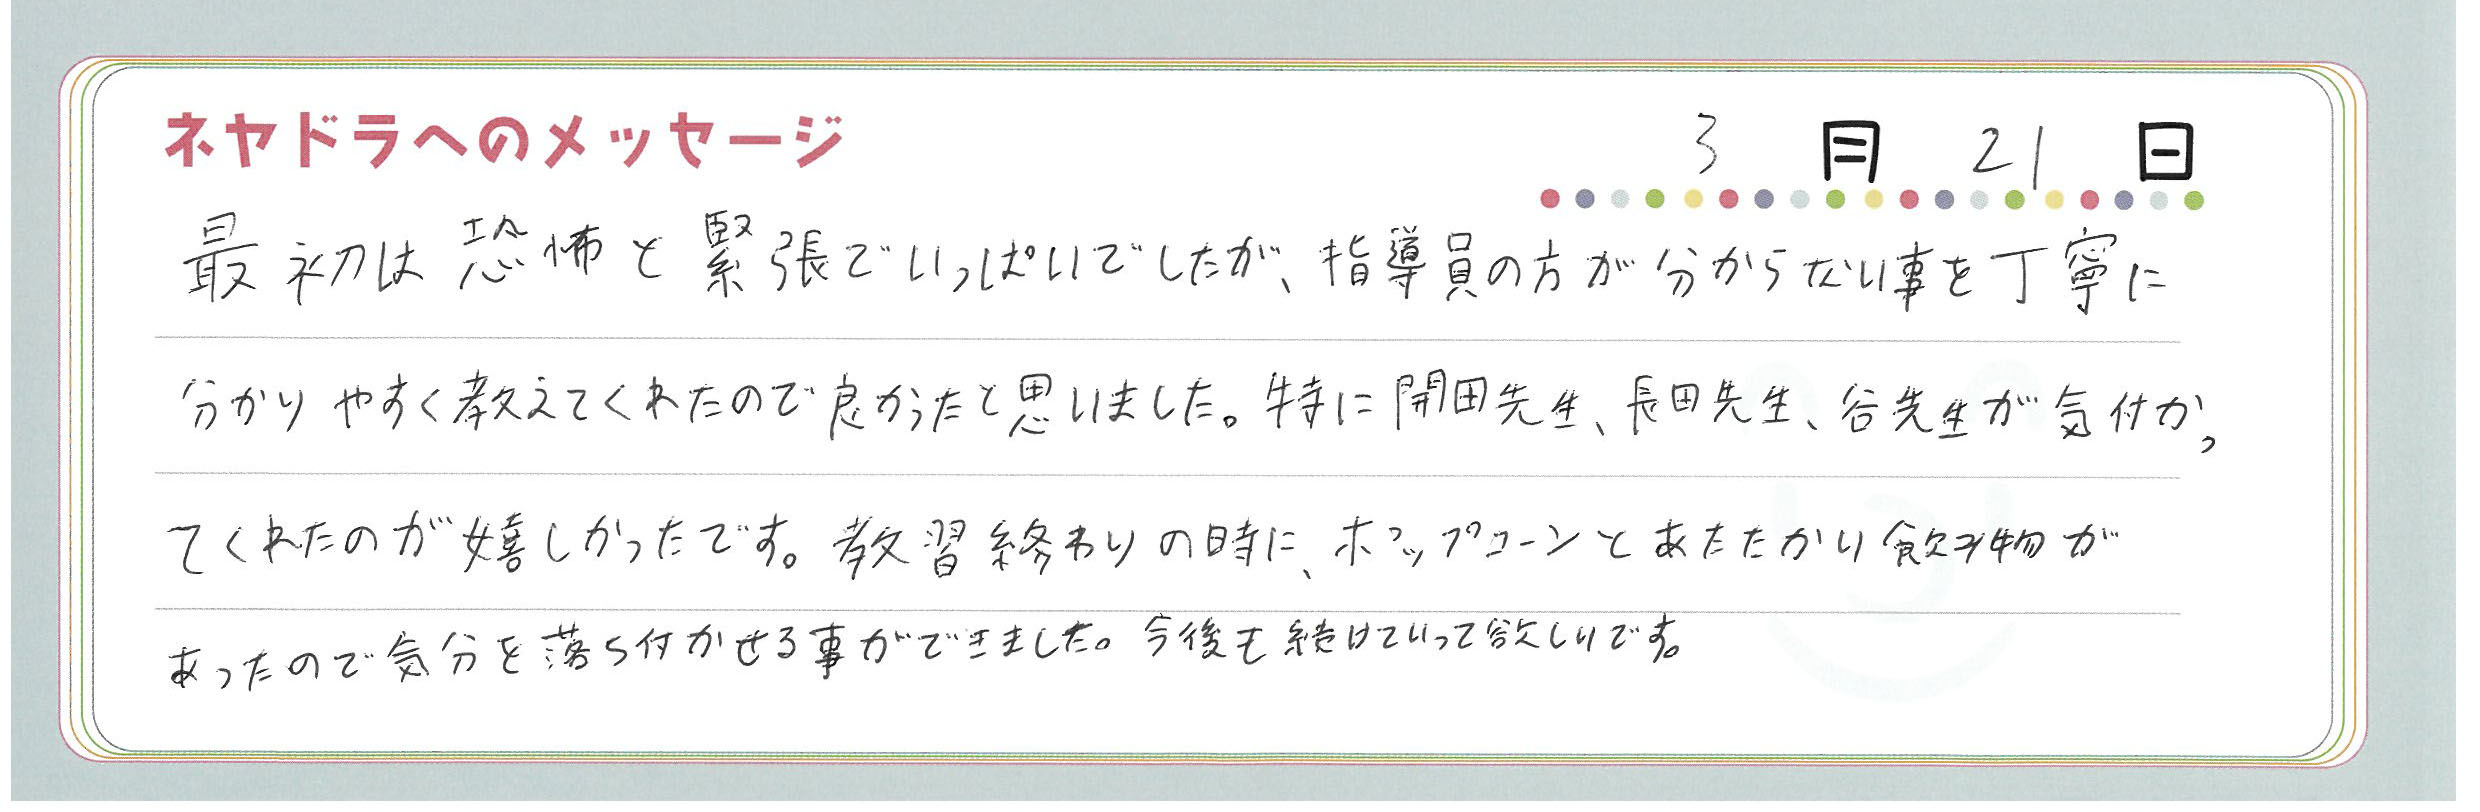 ネヤドラへのメッセージ 3月21日
最初は恐怖と緊張でいっぱいでしたが、指導員の方が分からない事を丁寧に
分かりやすく教えてくれたので良かったと思いました。特に開田先生、長田先生、谷先生が気付かっ
てくれたのが嬉しかったです。教習終わりの時に、ポップコーンとあたたかい飲み物が
あったので気分を落ち付かせる事ができました。今後も続けていって欲しいです。